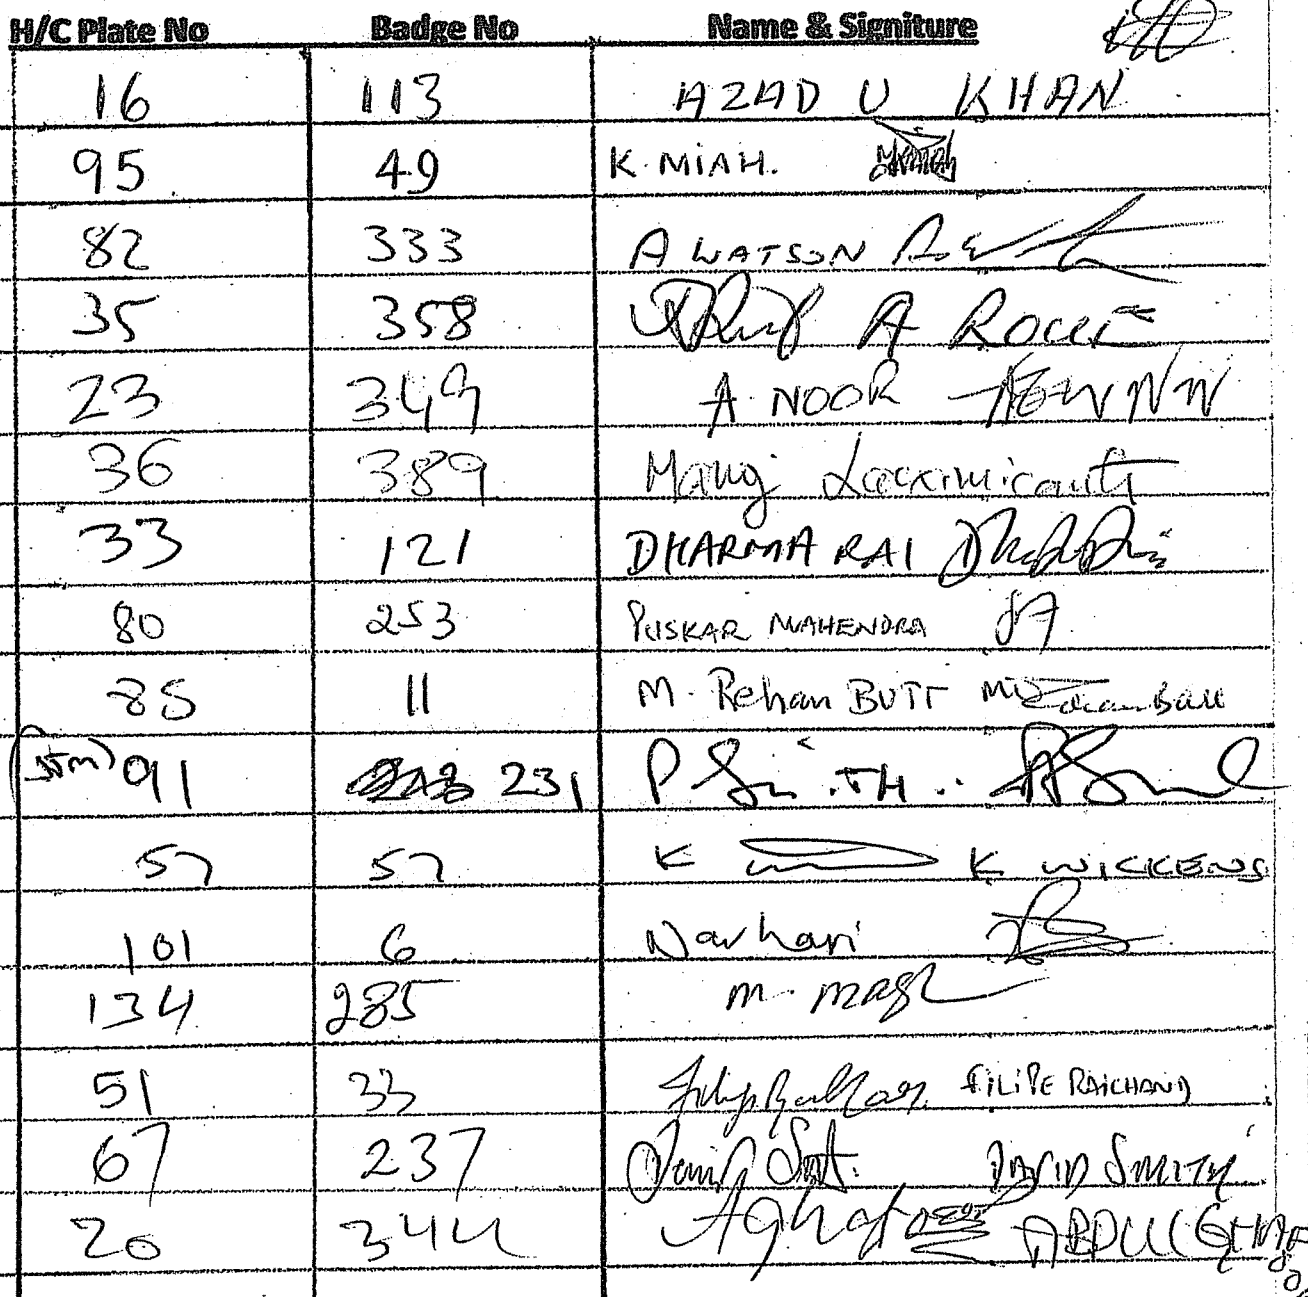 H/C Plate No Badge No Name & Signiture
16 113 AZAD U KHAN
95 49 K. MIAH.
82 333 A WATSON
35 358 A ROUE
23 349 A. NOOR
36 389 Manoj Laxmicant
33 121 DHARMA RAI
80 253 PUSKAR MAHENDRA
85 11 M. Rehan BUTT
91 231 P Smith
57 57 K K WICKENS
101 6 Narhari
134 285 m.
51 33 FILIPE RAICHAND
67 237 DAVID SMITH
20 344 ABDUL